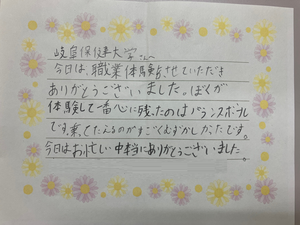 岐阜保健大学さんへ
今日は、職業体験をさせていただき
ありがとうございました。ぼくが
体験して一番心に残ったのはバランスボール
です。乗てたえるのがすごくむずかしかったです。
今日はお忙しい中本当にありがとうございました。